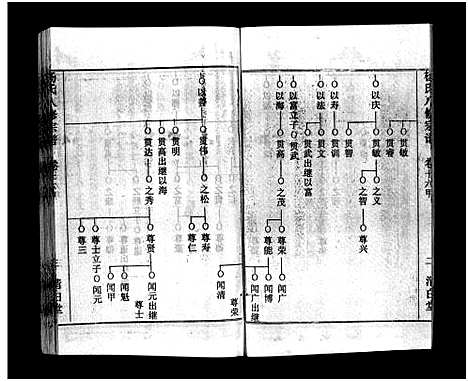 杨氏八修宗谱 卷十六甲
二 清白堂
以庆
贯敏
贯睿
之义
之智
尊兴
以寿
贯训
贯智
以法
贯文
以富立子贯武
贯武出继以富
以海
贯高
之茂
尊荣
尊能
闻广
闻博
闻广出继尊荣
闻清
以善
贯伟
贯明
贯高出继以海
贯达
之松
之秀
尊寿
尊仁
尊贤
尊士立子闻元
尊三
闻元出继尊士
闻魁
闻甲
杨氏八修宗谱
三 清白堂